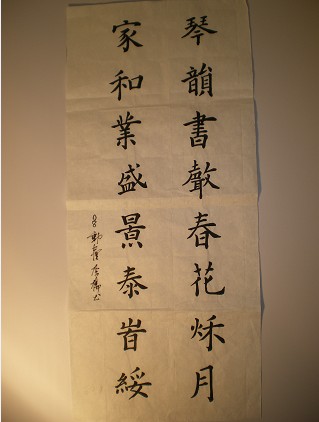 琴韻書聲春花秌月
家和業盛景泰旹綏